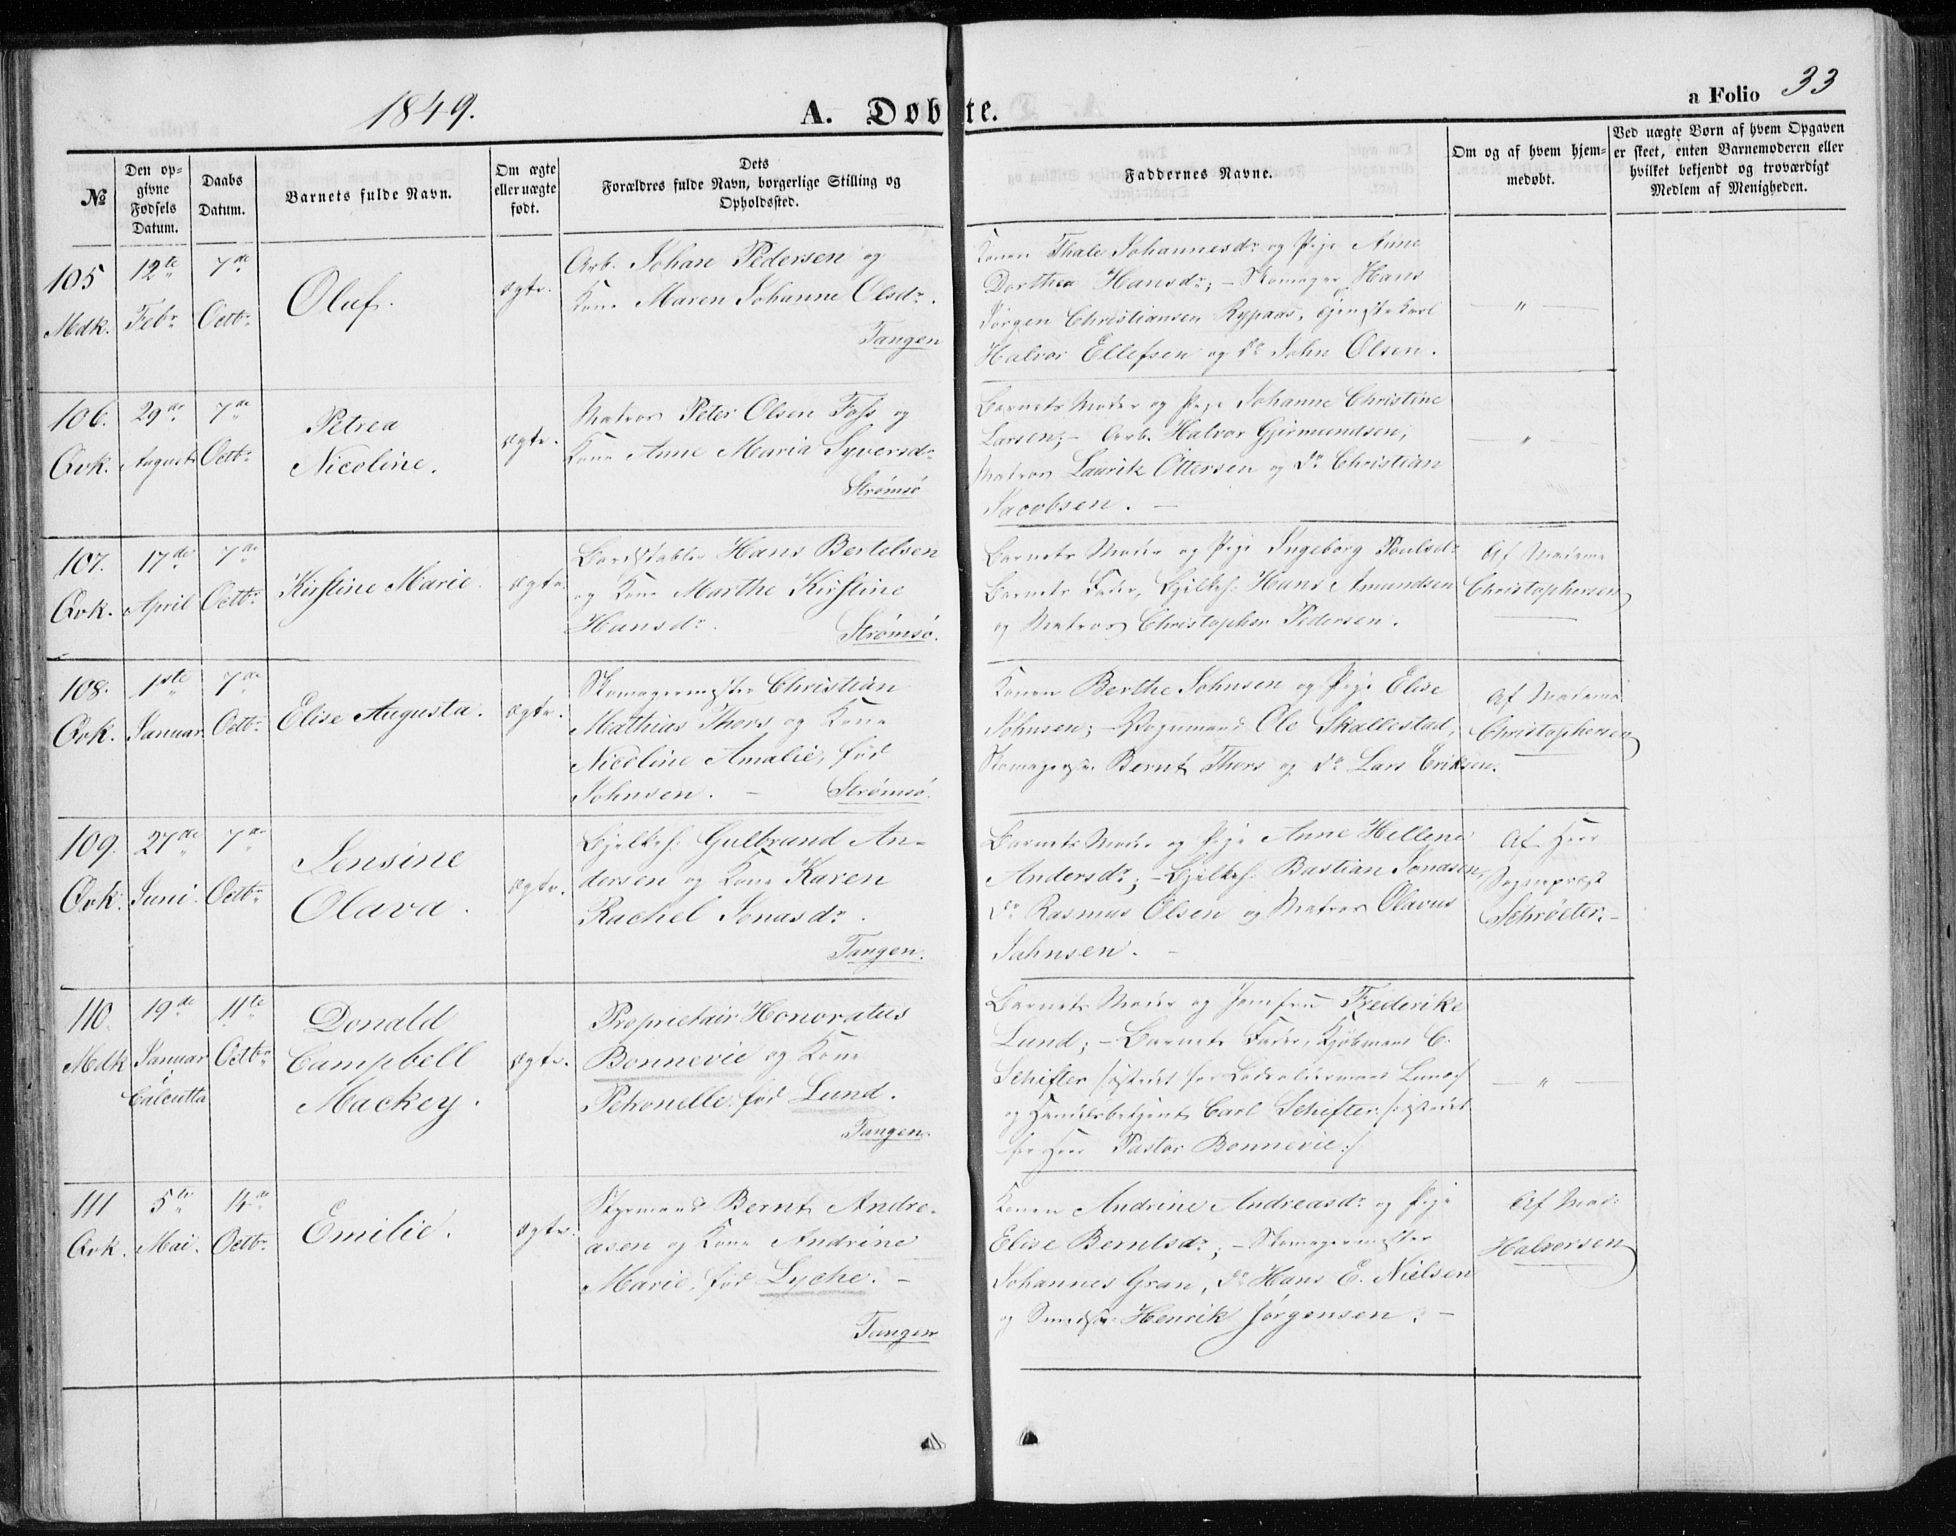 1849.
A. Døbte.
a Folio 33
№
Den opgivne Fødsels Datum.
Daabs Datum.
Barnets fulde Navn.
Om ægte eller uægte født.
Dets Forældres fulde Navn, borgerlige Stilling og Opholdssted.
Faddernes Navne.
Om og af hvem hjemmedøbt.
Ved uægte Børn af hvem Opgaven er skeet, enten Barnemoderen eller hvilket bekjendt og troværdigt Medlem af Menigheden.
105
Mdk.
12te
Febr
7de
Octbr
Oluf.
ægte.
Arb. Johan Pedersen og
Kone Maren Johanne Olsdr.
Tangen
Konen Thale Johannesdr og Pige Anne
Dorthea Hansdr; – Skomager Hans
Jørgen Christiansen Rypaas, Tjenestekarl
Halvor Ellefsen og do John Olsen.
— " —
106.
Qvk.
29de
August
7de
Octbr
Petrea
Nicoline.
ægte.
Matros Peter Olsen Foss og
Kone Anne Maria Syversdr
Strømsø
Barnets Moder og Pige Johanne Christine
Larsen; – Arb. Halvor Gjermundsen,
Matros Laurik Ottersen og do Christian
Jacobsen. –
— " —
107.
Qvk.
17de
April
7de
Octbr
Kirstine Marie.
ægte.
Bordstabler Hans Bertelsen
og Kone Marthe Kirstine
Hansdr.
Strømsø.
Barnets Moder og Pige Ingeborg Poulsdr
Barnets Fader, Hans Amundsen
og Matros Christopher Pedersen.
Af Madame
Christophersen
108.
Qvk.
1ste
Januar
7de
Octbr
Elise Augusta.
ægte.
Skomagermester Christian
Mathias Thors og Kone
Nicoline Amalie, fød
Johnsen. –
Strømsø.
Konen Berthe Johnsen og Pige Elise
Johnsen; – Ole Skallestad,
Skomagersv. Bernt Thors og do Lars Eriksen.
Af Madame
Christophersen
109.
Qvk.
27de
Juni.
7de
Octbr
Jensine
Olava.
ægte.
Gulbrand An-
dersen og Kone Karen
Rachel Jonasdr.
Tangen.
Barnets Moder og Pige Anne Hellene
Andersdr; – Bastian Jonasen,
do Rasmus Olsen og Matros Olavus
Jahnsen. –
Af Herr
Sognepræst
Schrøeter. –
110.
Mdk
19de
Januar
i
Calcutta
11te
Octbr
Donald
Campbell
Mackey.
ægte.
Proprietair Honoratus
Bonnevie og Kone
Petronelle, fød Lund.
Tangen.
Barnets Moder og Jomfru Frederikke
Lund; – Barnets Fader, Kjøbmand C.
Schifter /: istedet for Lund :/
og Handelsbetjent Carl Schifter /: istedet
for Herr Pastor Bonnevie :/
— " —
111
Qvk.
5te
Mai.
14de
Octbr
Emilie.
ægte.
Styrmand Bernt Andre-
asen og Kone Andrine
Marie, fød Lyche. –
Tangen
Konen Andrine Andreasdr og Pige
Elise Berntsdr; – Skomagermester
Johannes Gran, do Hans E. Nielsen
og Smedsv. Henrik Jørgensen. –
Af Mad:
Halvorsen